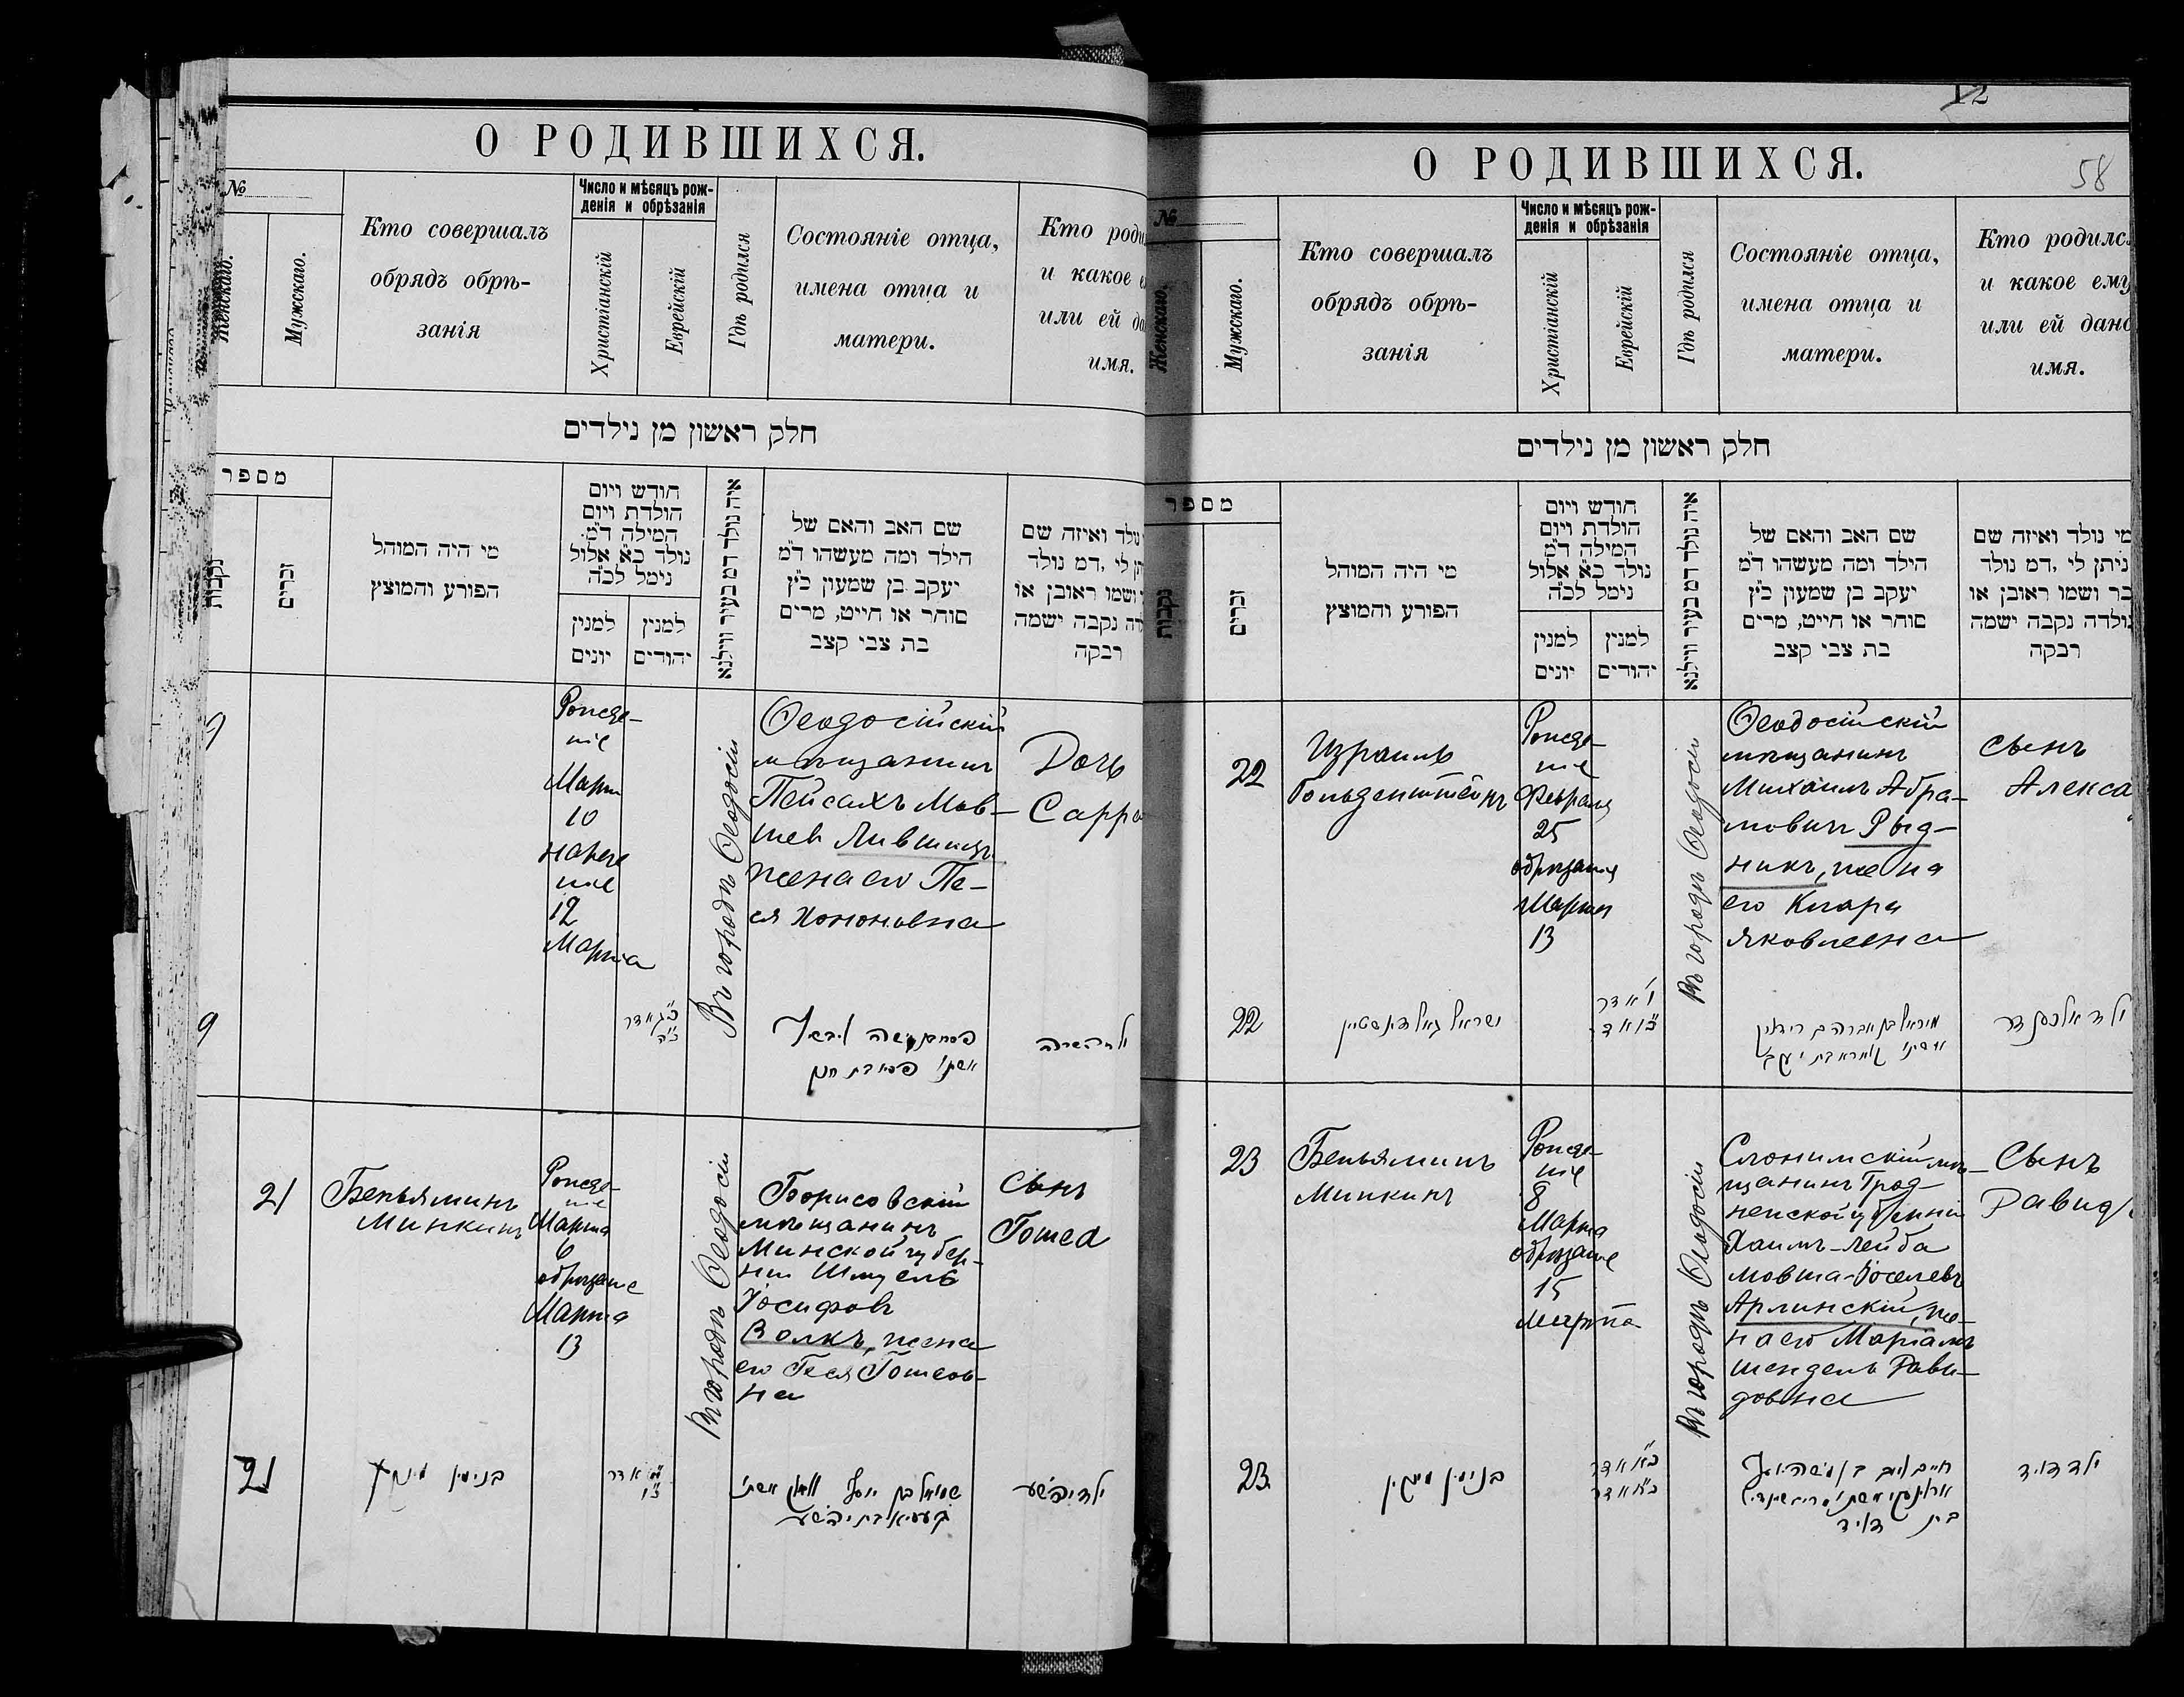 О РОДИВШИХСЯ.
№
Женскаго.
Мужскаго.
Кто совершалъ
обрядъ обрѣ-
занія
Число и мѣсяцъ рож-
денія и обрѣзанія
Христіанскій
Еврейскій
Гдѣ родился
Состояніе отца,
имена отца и
матери.
Кто роди
и какое е
или ей да
имя.
חלק ראשון מן נילדים
מספר
נקבות
זכרים
מי היה המוהל
הפורע והמוצץ
חודש ויום
הולדת ויום
המילה ד״מ
נולד כ״א אלול
נימל לכ״ה
למנין
יונים
למנין
יהודים
איה נולד דמ בעיר ווילנא
שם האב והאם של
הילד ומה מעשהו ד״מ
יעקב בן שמעון כ״ץ
סוחר או חייט, מרים
בת צבי קצב
נולד ואיזה שם
תן לי, דמ נולד
ושמו ראובן או
דה נקבה ישמה
רבקה
9
Рожде-
ніе
Марта
10
нарече
ніе
12
Марта
Въ городѣ Ѳеодосіи
Ѳеодосійскій
мѣщанинъ
Пейсахъ Мов-
шев Лившицъ
жена его Пе-
ся Хононовна
Дочь
Сарра
9
21
Беньяминъ
Минкинъ
Рожде-
ніе
Марта
6
обрѣзаніе
Марта
13
Въ городѣ Ѳеодосіи
Борисовскій
мѣщанинъ
Минской губер-
ніи Шмуель
Іосифовъ
Волкъ, жена
его Геся Гошеов-
на
Сынъ
Гошеа
21
בנימין מינקין
שמואל בן יוסף וואלק אשתו
ילד יהושע
12
58
О РОДИВШИХСЯ.
№
Женскаго.
Мужскаго.
Кто совершалъ
обрядъ обрѣ-
занія
Число и мѣсяцъ рож-
денія и обрѣзанія
Христіанскій
Еврейскій
Гдѣ родился
Состояніе отца,
имена отца и
матери.
Кто родилс
и какое ему
или ей дано
имя.
חלק ראשון מן נילדים
מספר
נקבות
זכרים
מי היה המוהל
הפורע והמוצץ
חודש ויום
הולדת ויום
המילה ד״מ
נולד כ״א אלול
נימל לכ״ה
למנין
יונים
למנין
יהודים
איה נולד דמ בעיר ווילנא
שם האב והאם של
הילד ומה מעשהו ד״מ
יעקב בן שמעון כ״ץ
סוחר או חייט, מרים
בת צבי קצב
מי נולד ואיזה שם
ניתן לי, דמ נולד
בר ושמו ראובן או
נולדה נקבה ישמה
רבקה
22
Израиль
Гольденштейнъ
Рожде-
ніе
Февраля
25
обрѣзанія
Марта
13
Въ городѣ Ѳеодосіи
Ѳеодосійскій
мѣщанинъ
Михаилъ Абра-
мовичъ Рыд-
никъ, жена
его Клара
Яковлевна
сынъ
Алекса
22
ישראל גאלדינשטיין
ו׳ אדר
כ״ו אדר
ילד אלכסנדר
23
Беньяминъ
Минкинъ
Рожде-
ніе
8
Марта
обрѣзаніе
15
Марта
Въ городѣ Ѳеодосіи
Слонимскій мѣ-
щанинъ Грод-
ненской губерніи
Хаимъ-Лейба
Мовша-Іоселевъ
Арлинскій, же-
на его Маріамъ
Шендель Дави-
довна
Сынъ
Давидъ
23
בנימין מינקין
בת דויד
ילד דויד